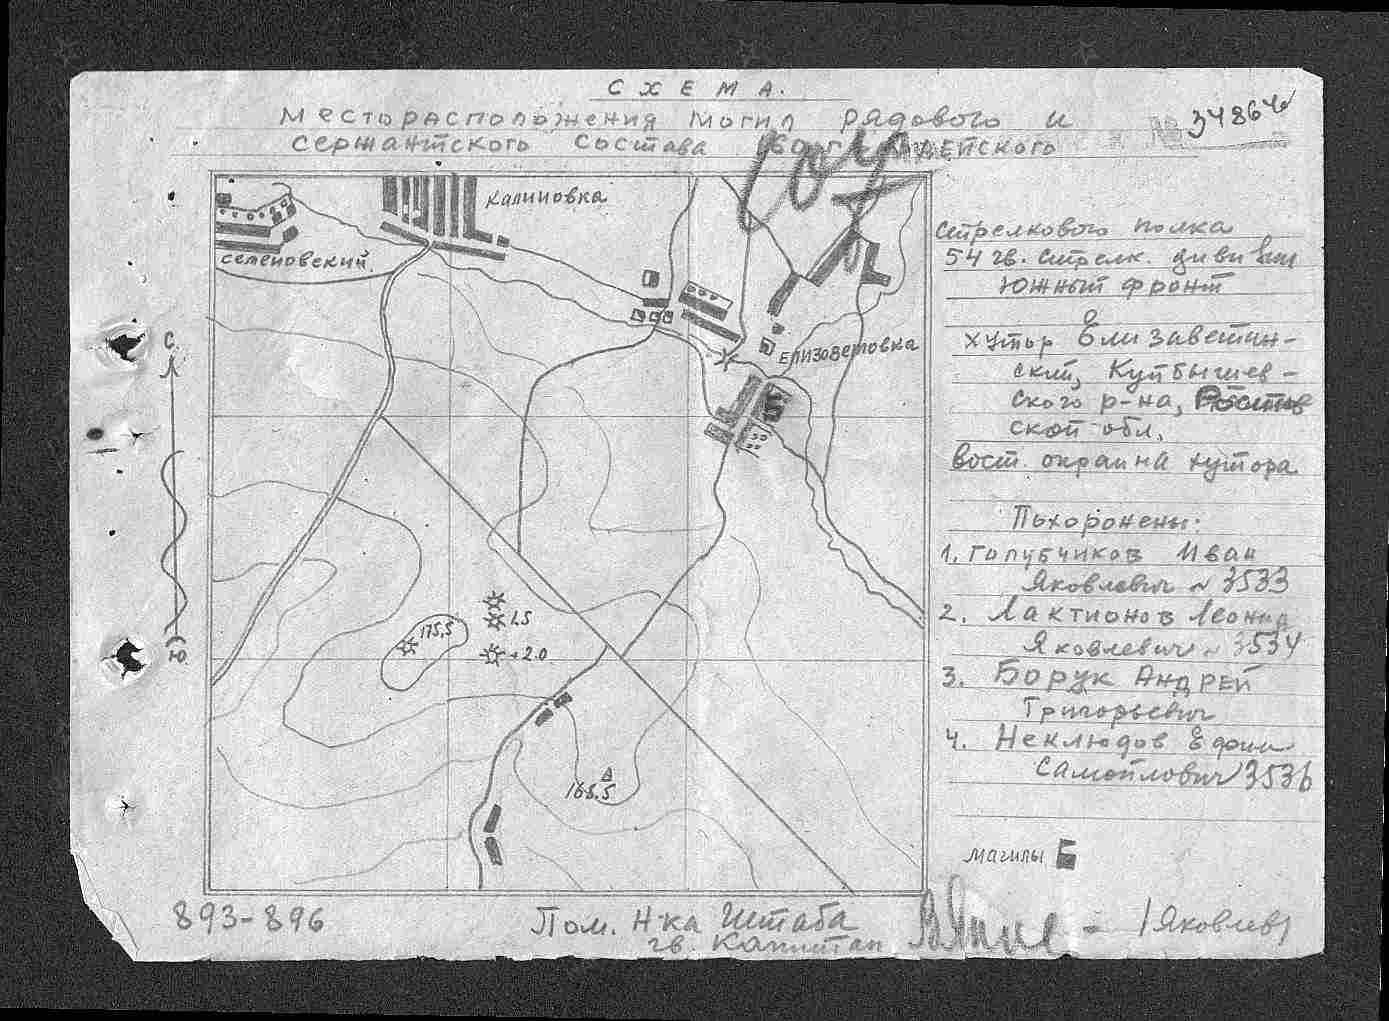 СХЕМА.
Месторасположения могил рядового и
сержантского состава гвардейского
34864
стрелкового полка
54 гв. стрелк. дивизии
Южный фронт
хутор Елизаветин-
ский, Куйбышев-
ского р-на, Ростов
ской обл.
вост. окраина хутора
Похоронены:
1. Голубчиков Иван
Яковлевич ~ 3533
2. Лактионов Леонид
Яковлевич ~ 3534
3. Борук Андрей
Григорьевич
4. Неклюдов Ефим
Самойлович 3536
Магилы
Калиновка
Семеновский.
Елизоветовка
С.
Ю.
175,5
1,5
+2.0
168.5
893-896
Пом. Н-ка Штаба
гв. Капитан
/Яковлев/